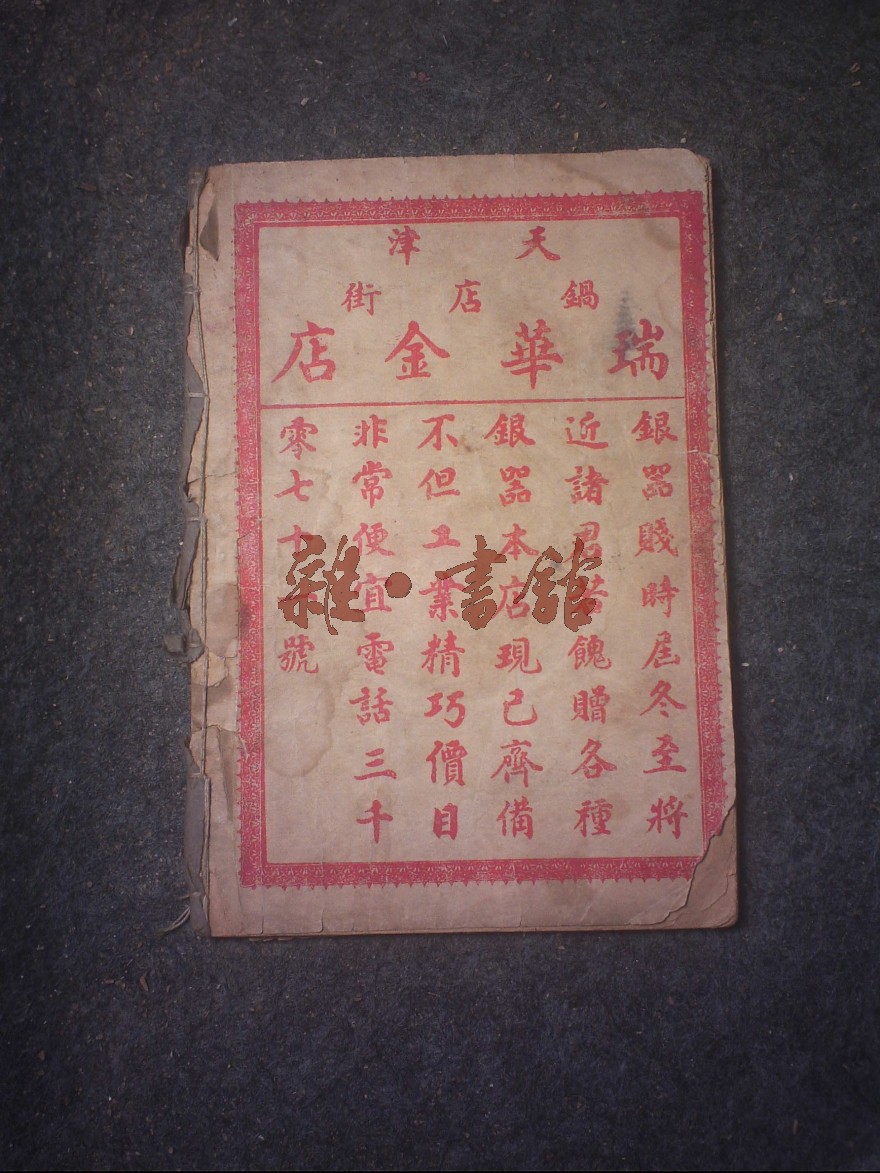 天津
鍋店街
瑞華金店
銀器賤時屆冬至將
近諸君若餽贈各種
銀器本店現已齊備
不但工業精巧價目
非常便宜電話三千
零七十號
雜·書館